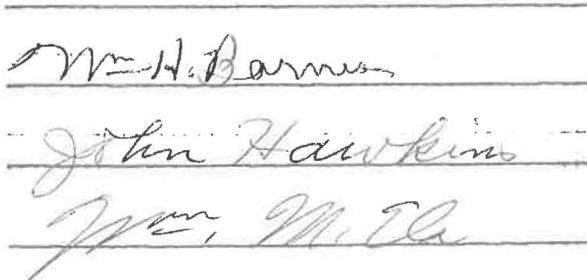 Wm H. Barnes
John Hawkins
Wm. M.